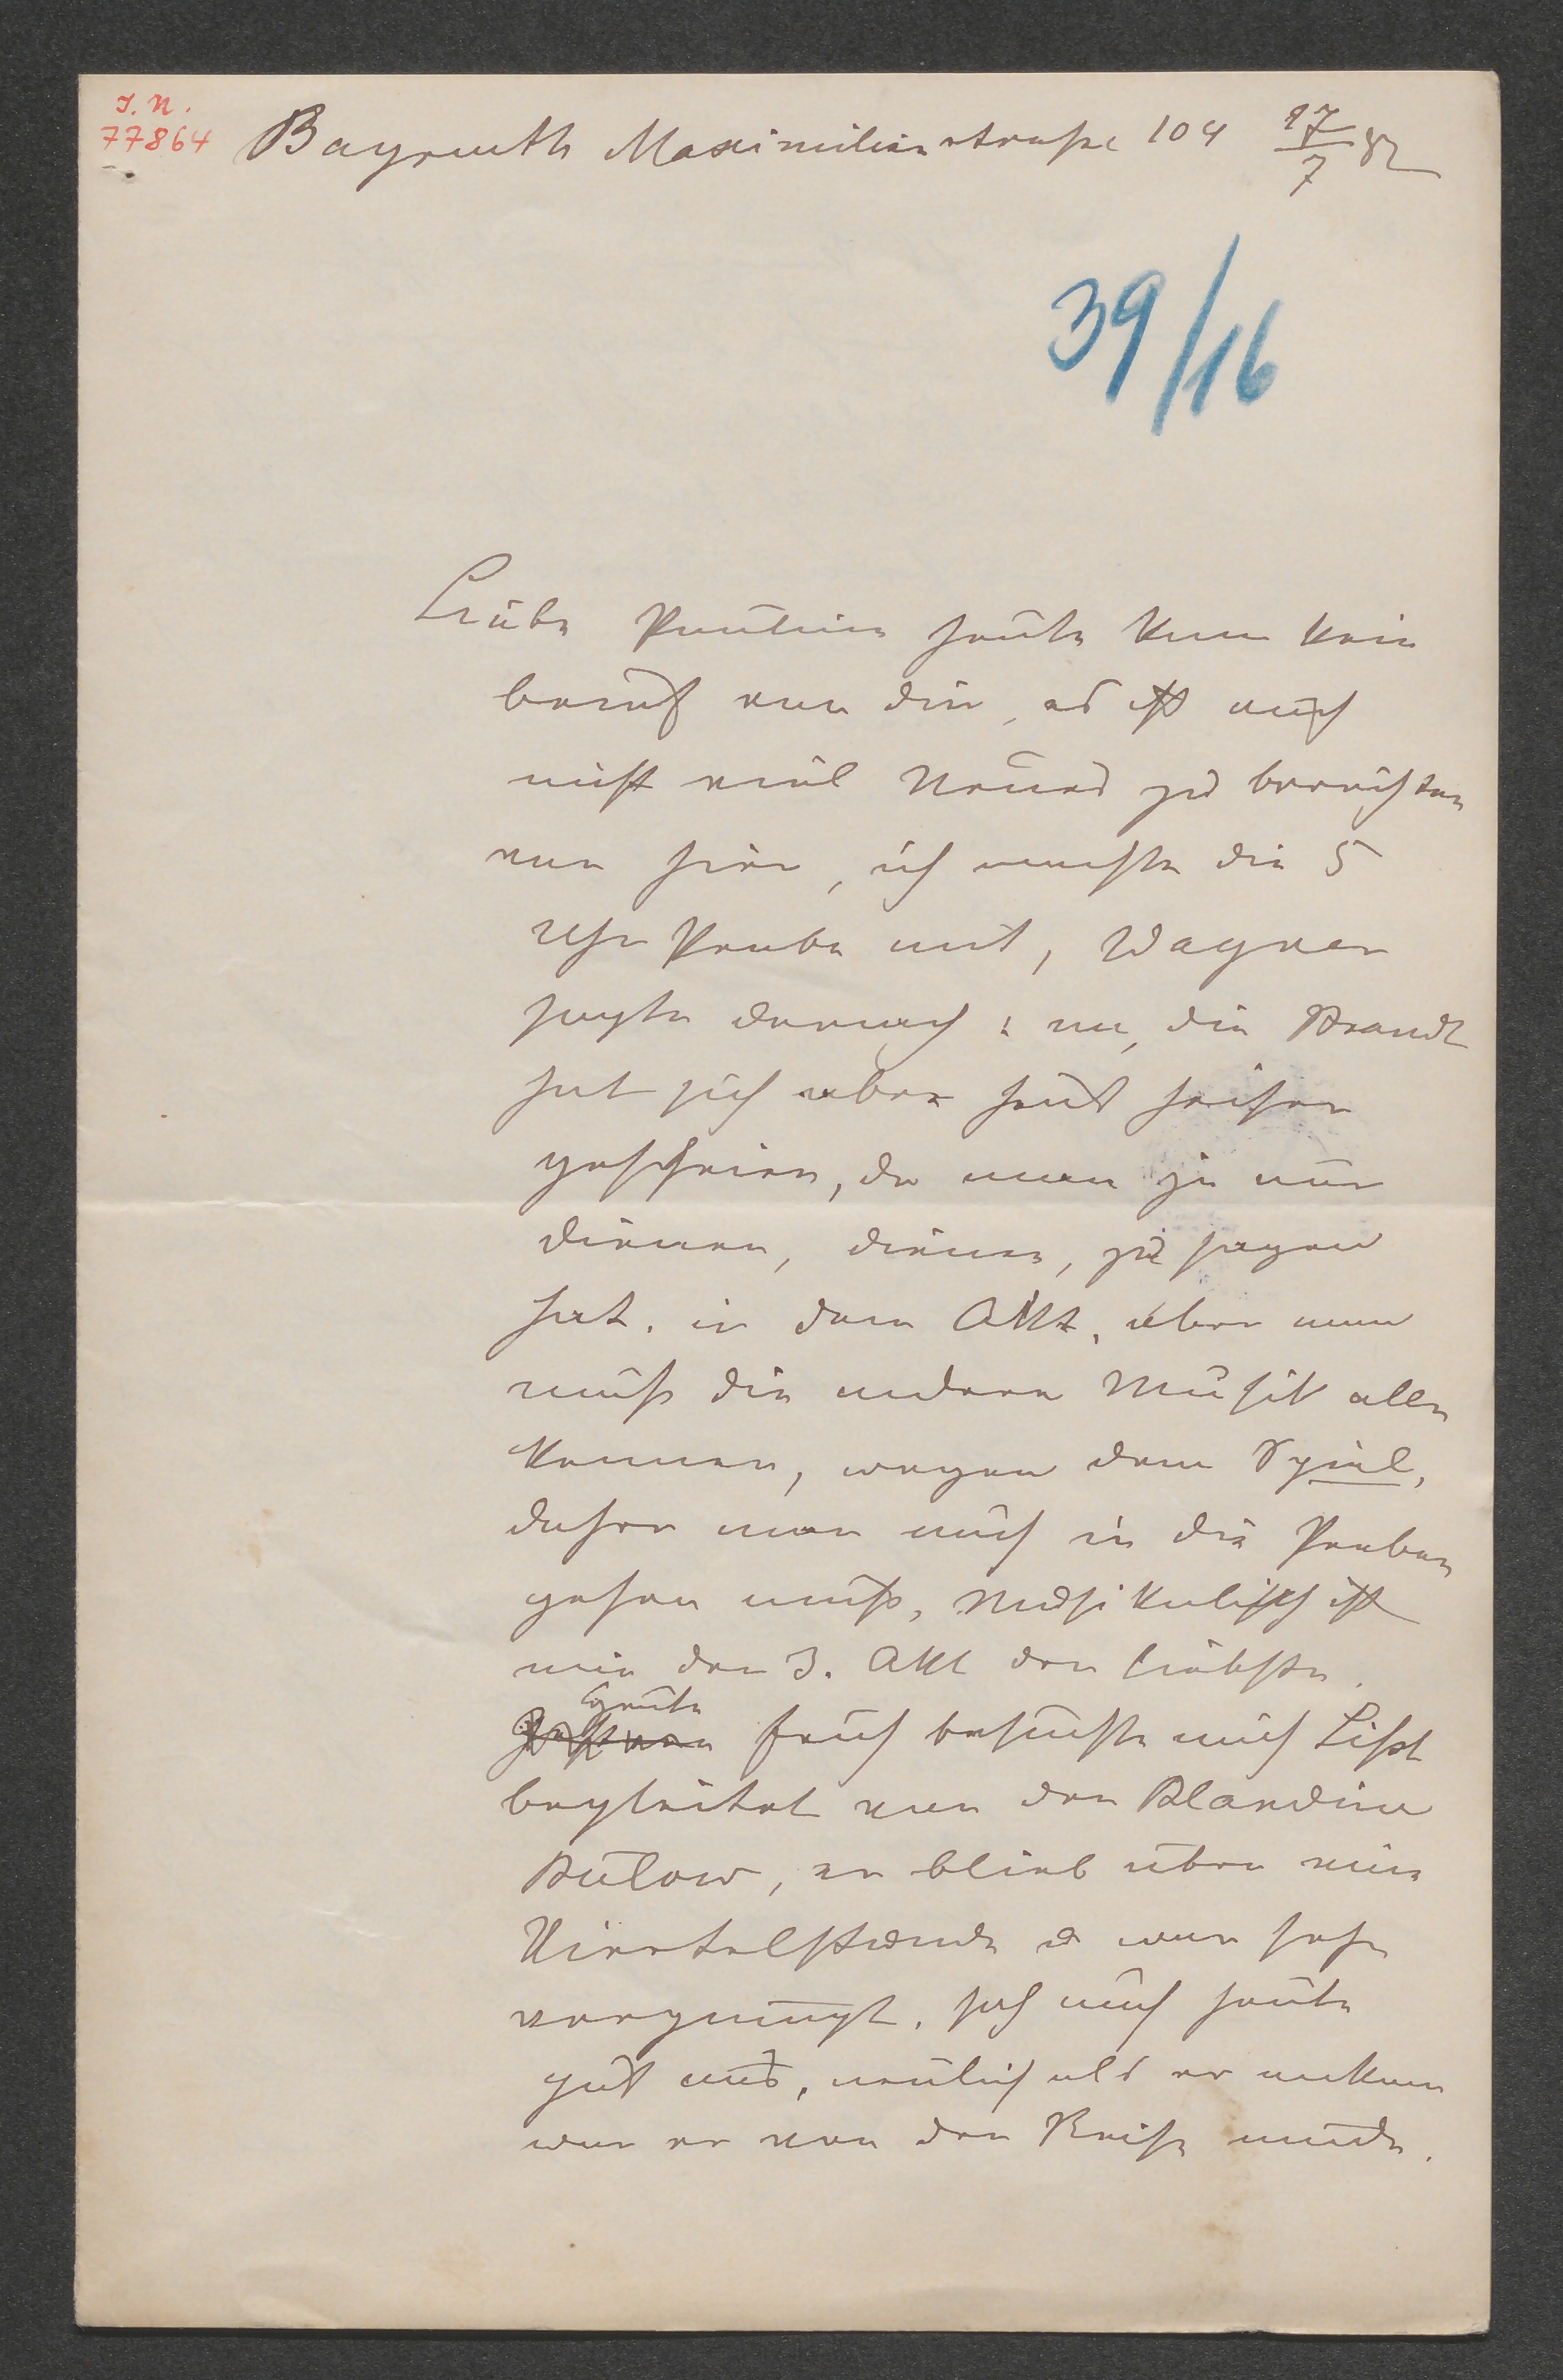 I. N.
77864
Bayreuth Maximilianstraße 104 17/7 82
39/16
Liebe Pauline heute kam kein
brief von dir, es ist auch
nicht viel Neues zu berichten
von hier, ich machte die 5
Uhr Probe mit, Wagner
sagte darnach: na, die Brandt
hat sich aber heut heiser
geschrien, da man ja nur
dienen, dienen, zu sagen
hat. in dem Akt, aber man
muß die andere Musik alle
kennen, wegen dem Spiel,
daher man auch in die Proben
gehen muß, Musikalisch ist
mir der 3. Akt der liebste.
Heute
Gestern früh besuchte mich Lißt
begleitet von der Blandine
Bülow, er blieb über eine
Viertelstunde u war sehr
vergnügt. sah auch heute
gut aus, neulich als er ankam
war er von der Reise müde.